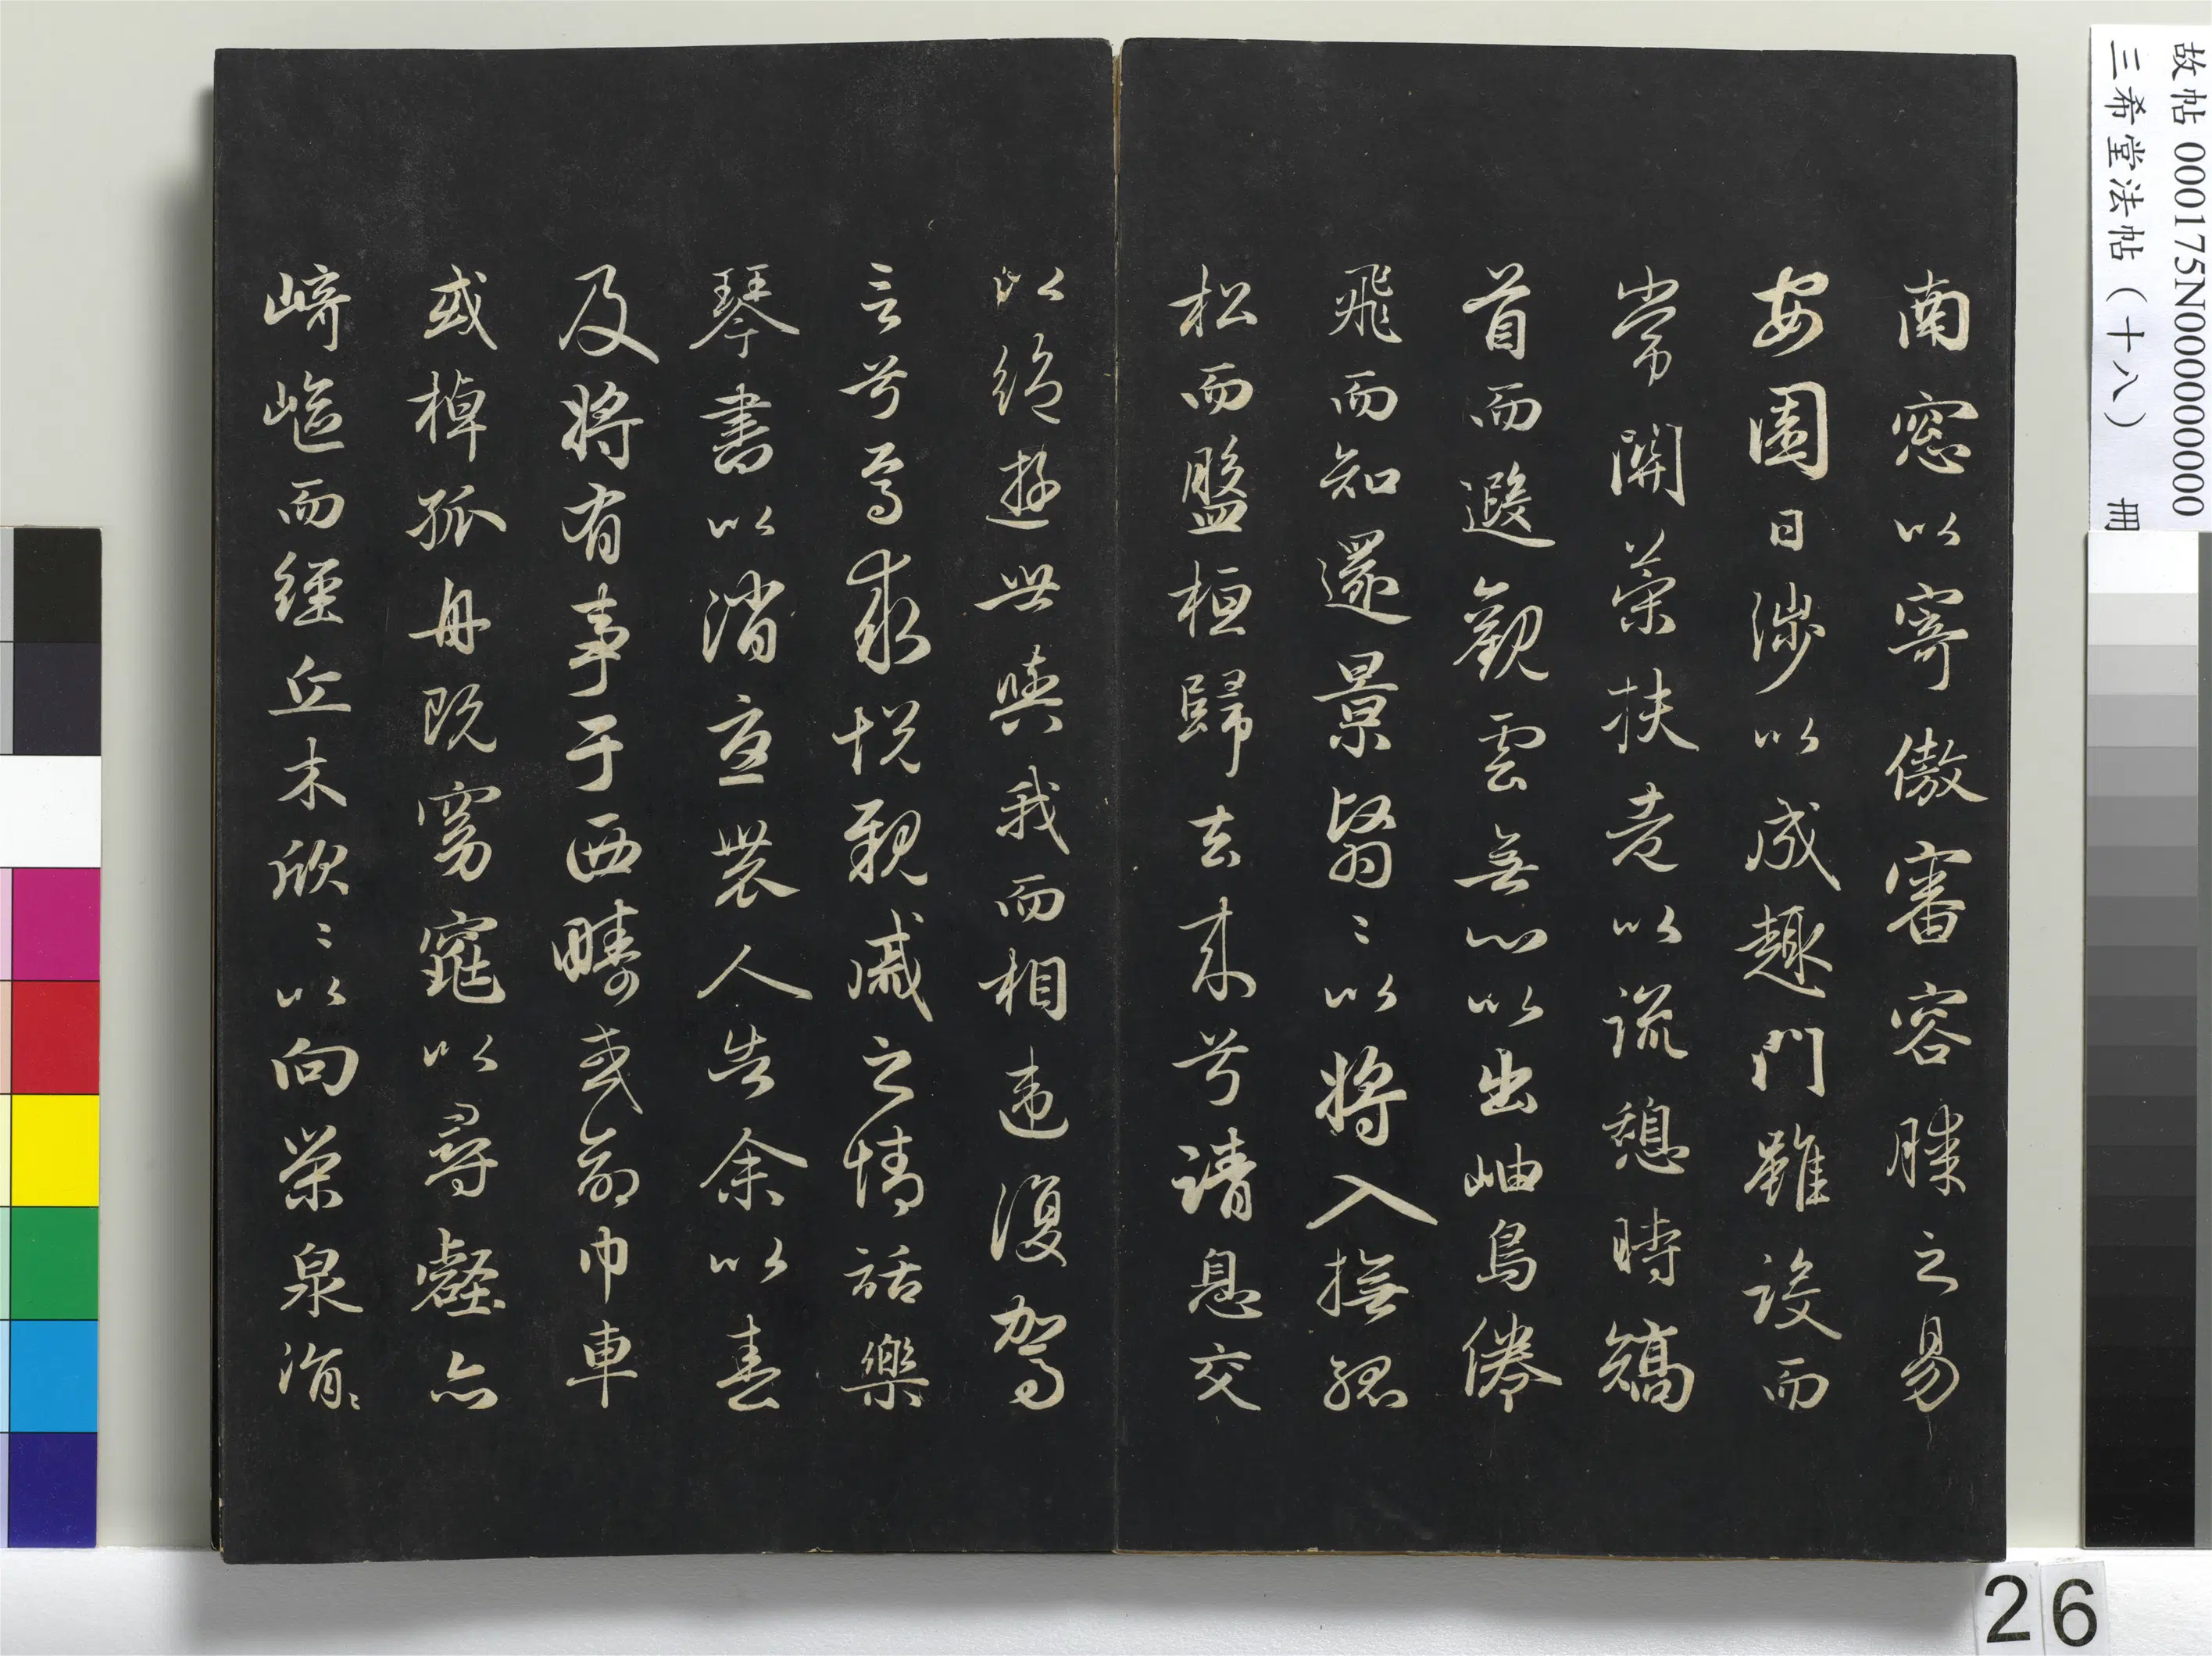 故帖 000175N000000000
三希堂法帖（十八） 冊
南窓以寄傲審容膝之易
安園日涉以成趣門雖設而
常關策扶老以流憩時矯
首而遐觀雲無心以出岫鳥倦
飛而知還景翳々以將入撫孤
松而盤桓歸去来兮請息交
以絶遊世與我而相違復駕
言兮焉求悦親戚之情話樂
琴書以消憂農人告余以春
及將有事于西疇或命巾車
或棹孤舟既窈窕以尋壑亦
崎嶇而經丘木欣々以向榮泉涓々
26